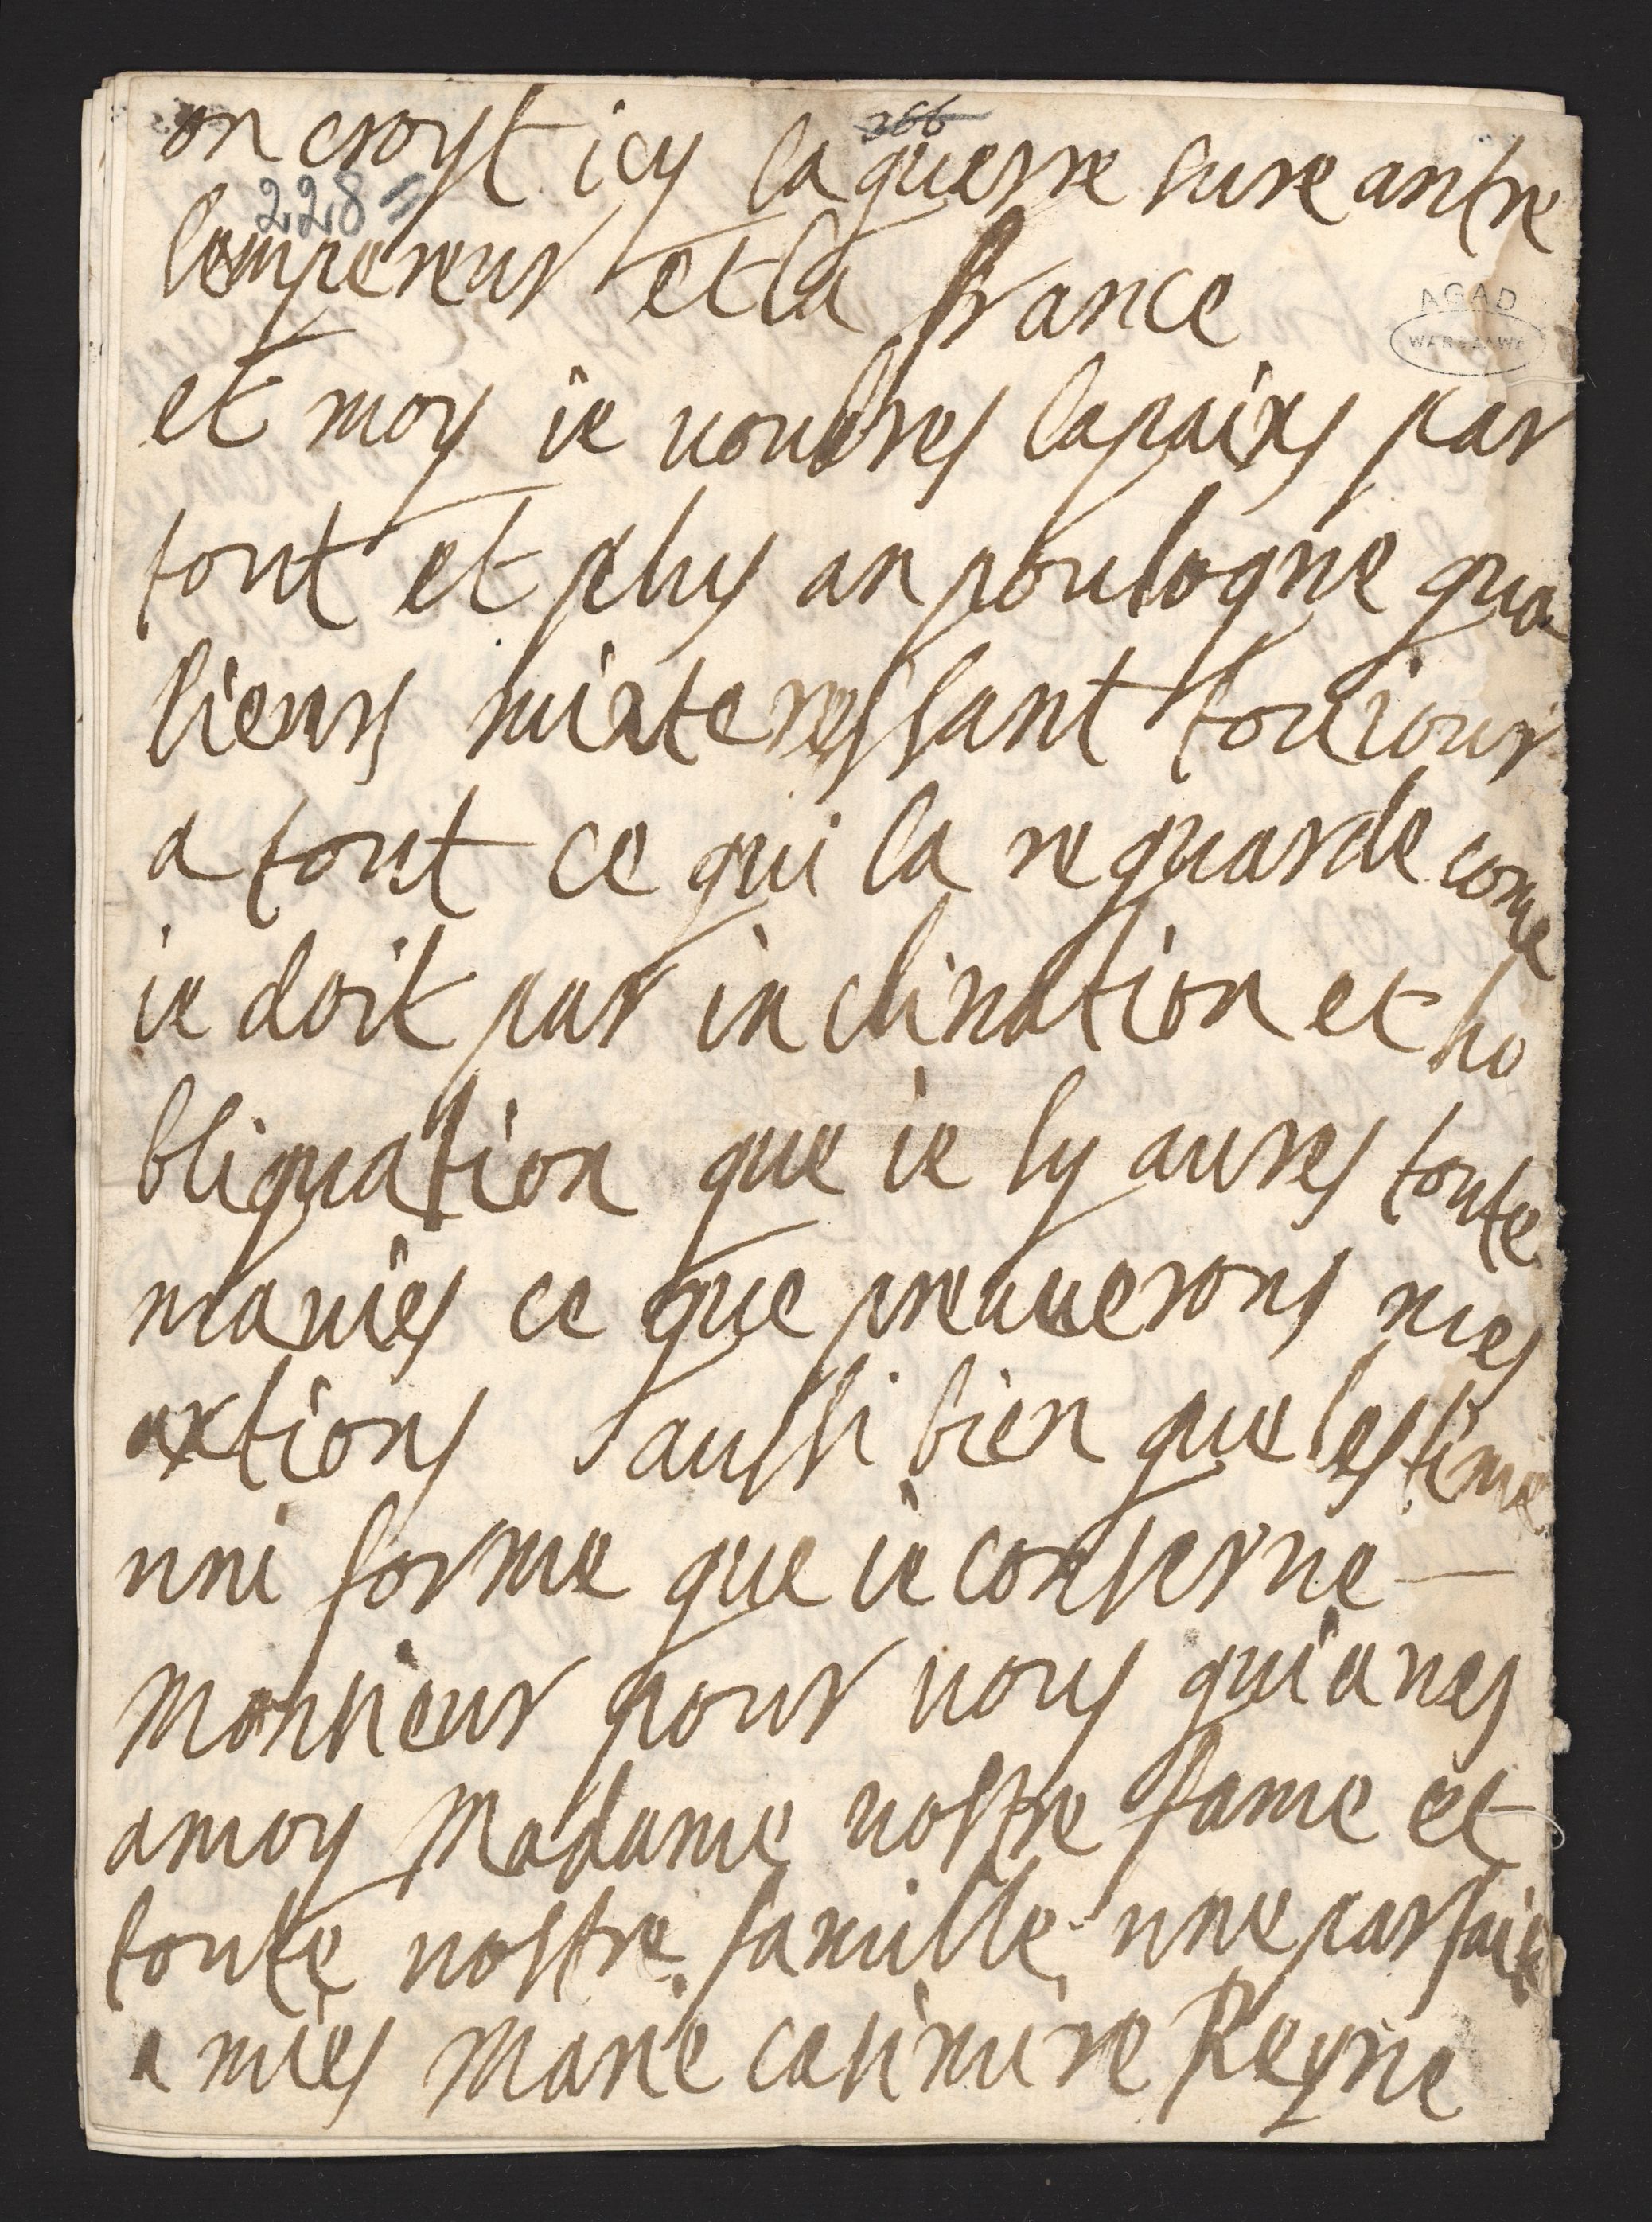 366
on croyt icy la guerre sure antre
228
lempereur et la france
AGAD
WARSZAWA
et moy ie voudres la paixs par
tout et plus an poulogne qua
lieurs minteressant touiour
a tout ce qui la reguarde come
ie doit par inclination et ho
bliguation que ie ly aures toute
mavies ce que preuverons mes
axtions saussi bien que lestime
uni forme que ie conserve
monsieur pour vous qui aves
amoy Madame vostre fame et
toute vostre famille une parfaite
amies Marie casimire Reyne